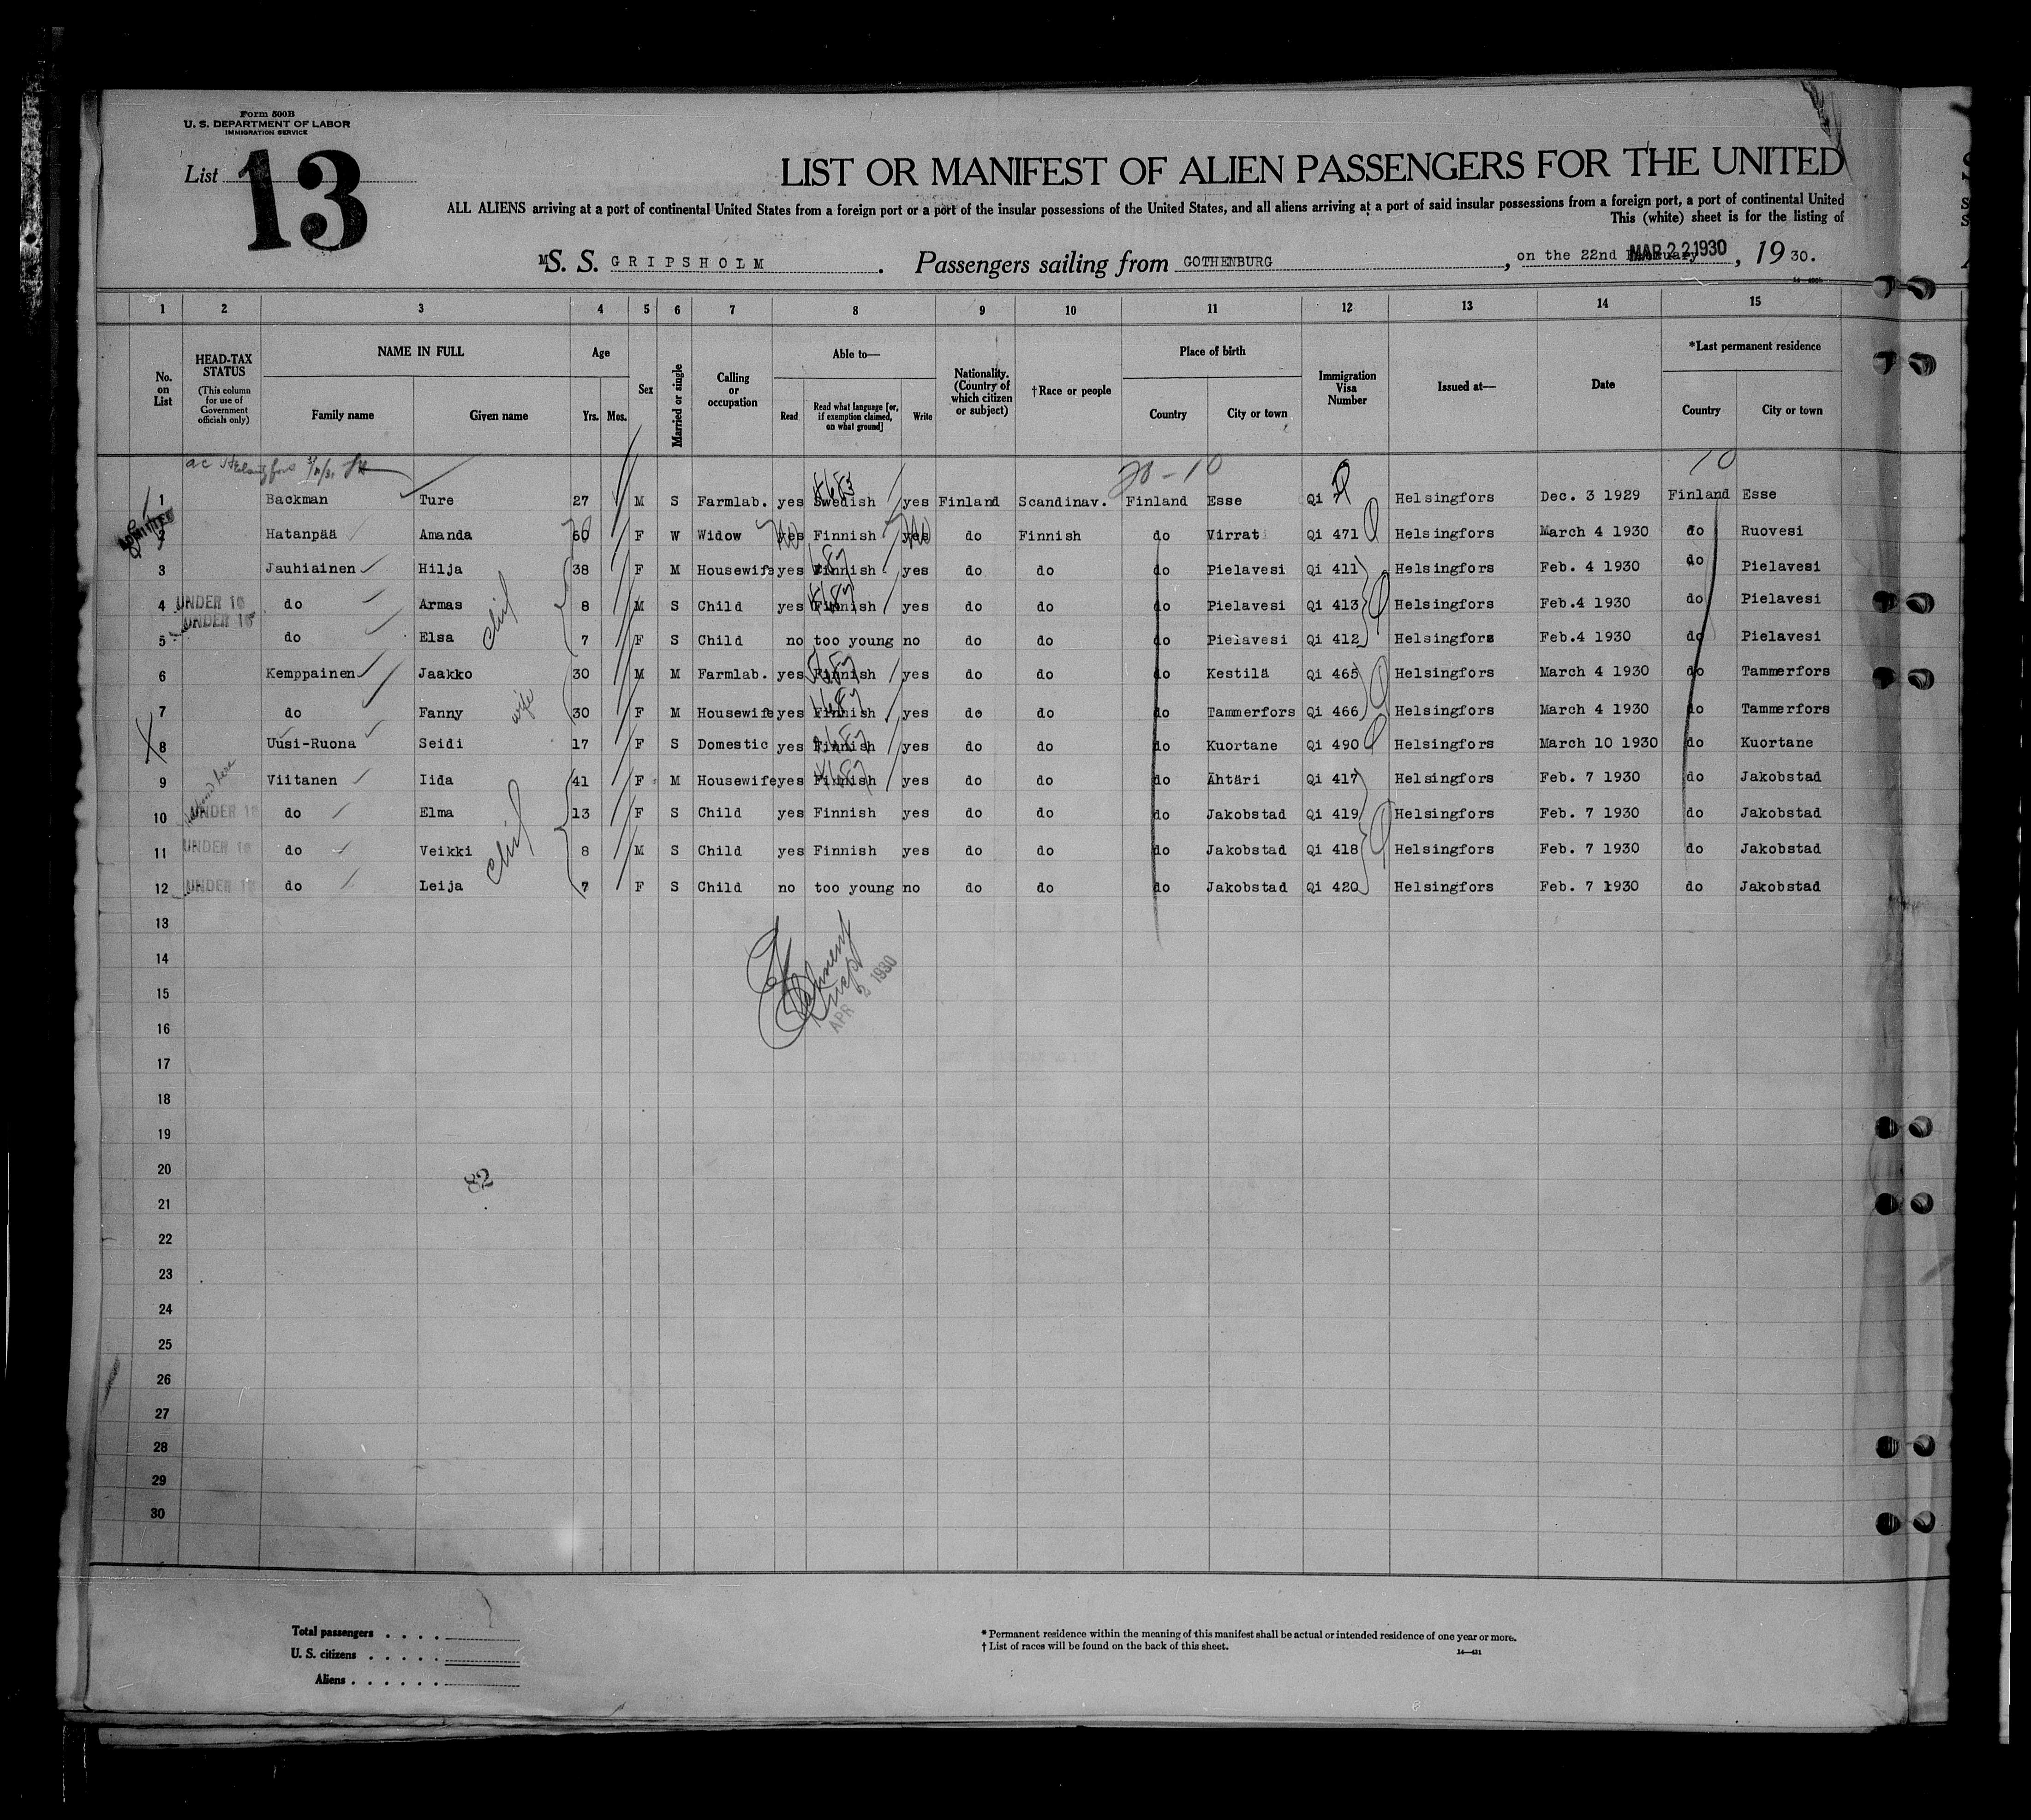 Form 500B
U. S. DEPARTMENT OF LABOR
IMMIGRATION SERVICE
List 13
LIST OR MANIFEST OF ALIEN PASSENGERS FOR THE UNITED
ALL ALIENS arriving at a port of continental United States from a foreign port or a port of the insular possessions of the United States, and all aliens arriving at a port of said insular possessions from a foreign port, a port of continental United
This (white) sheet is for the listing of
MS. S. GRIPSHOLM. Passengers sailing from GOTHENBURG, on the 22nd MAR 22 1930, 1930.
1 2 3 4 5 6 7 8 9 10 11 12 13 14 15
No. on List
HEAD-TAX STATUS
(This column for use of Government officials only)
NAME IN FULL
Family name Given name
Age
Yrs. Mos.
Sex
Married or single
Calling or occupation
Able to—
Read
Read what language [or, if exemption claimed, on what ground]
Write
Nationality. (Country of which citizen or subject)
†Race or people
Place of birth
Country City or town
Immigration Visa Number
Issued at—
Date
*Last permanent residence
Country City or town
20-10 10
1 Backman Ture 27 M S Farmlab. yes Swedish yes Finland Scandinav. Finland Esse Qi Helsingfors Dec. 3 1929 Finland Esse
ADMITTED
2 Hatanpää Amanda 60 F W Widow yes No Finnish yes No do Finnish do Virrat Qi 471 Helsingfors March 4 1930 do Ruovesi
3 Jauhiainen Hilja 38 F M Housewife yes Finnish yes do do do Pielavesi Qi 411 Helsingfors Feb. 4 1930 do Pielavesi
4 UNDER 16 do Armas 8 M S Child yes Finnish yes do do do Pielavesi Qi 413 Helsingfors Feb.4 1930 do Pielavesi
5 UNDER 16 do Elsa 7 F S Child no too young no do do do Pielavesi Qi 412 Helsingfors Feb.4 1930 do Pielavesi
6 Kemppainen Jaakko 30 M M Farmlab. yes Finnish yes do do do Kestilä Qi 465 Helsingfors March 4 1930 do Tammerfors
7 do Fanny wife 30 F M Housewife yes Finnish yes do do do Tammerfors Qi 466 Helsingfors March 4 1930 do Tammerfors
8 Uusi-Ruona Seidi 17 F S Domestic yes Finnish yes do do do Kuortane Qi 490 Helsingfors March 10 1930 do Kuortane
9 Viitanen Iida 41 F M Housewife yes Finnish yes do do do Ähtäri Qi 417 Helsingfors Feb. 7 1930 do Jakobstad
10 UNDER 16 do Elma 13 F S Child yes Finnish yes do do do Jakobstad Qi 419 Helsingfors Feb. 7 1930 do Jakobstad
11 UNDER 16 do Veikki 8 M S Child yes Finnish yes do do do Jakobstad Qi 418 Helsingfors Feb. 7 1930 do Jakobstad
12 UNDER 16 do Leija 7 F S Child no too young no do do do Jakobstad Qi 420 Helsingfors Feb. 7 1930 do Jakobstad
13
14
15
APR 2 1930
16
17
18
19
20
82
21
22
23
24
25
26
27
28
29
30
Total passengers . . . .
U. S. citizens . . . . .
Aliens . . . . . .
* Permanent residence within the meaning of this manifest shall be actual or intended residence of one year or more.
† List of races will be found on the back of this sheet.